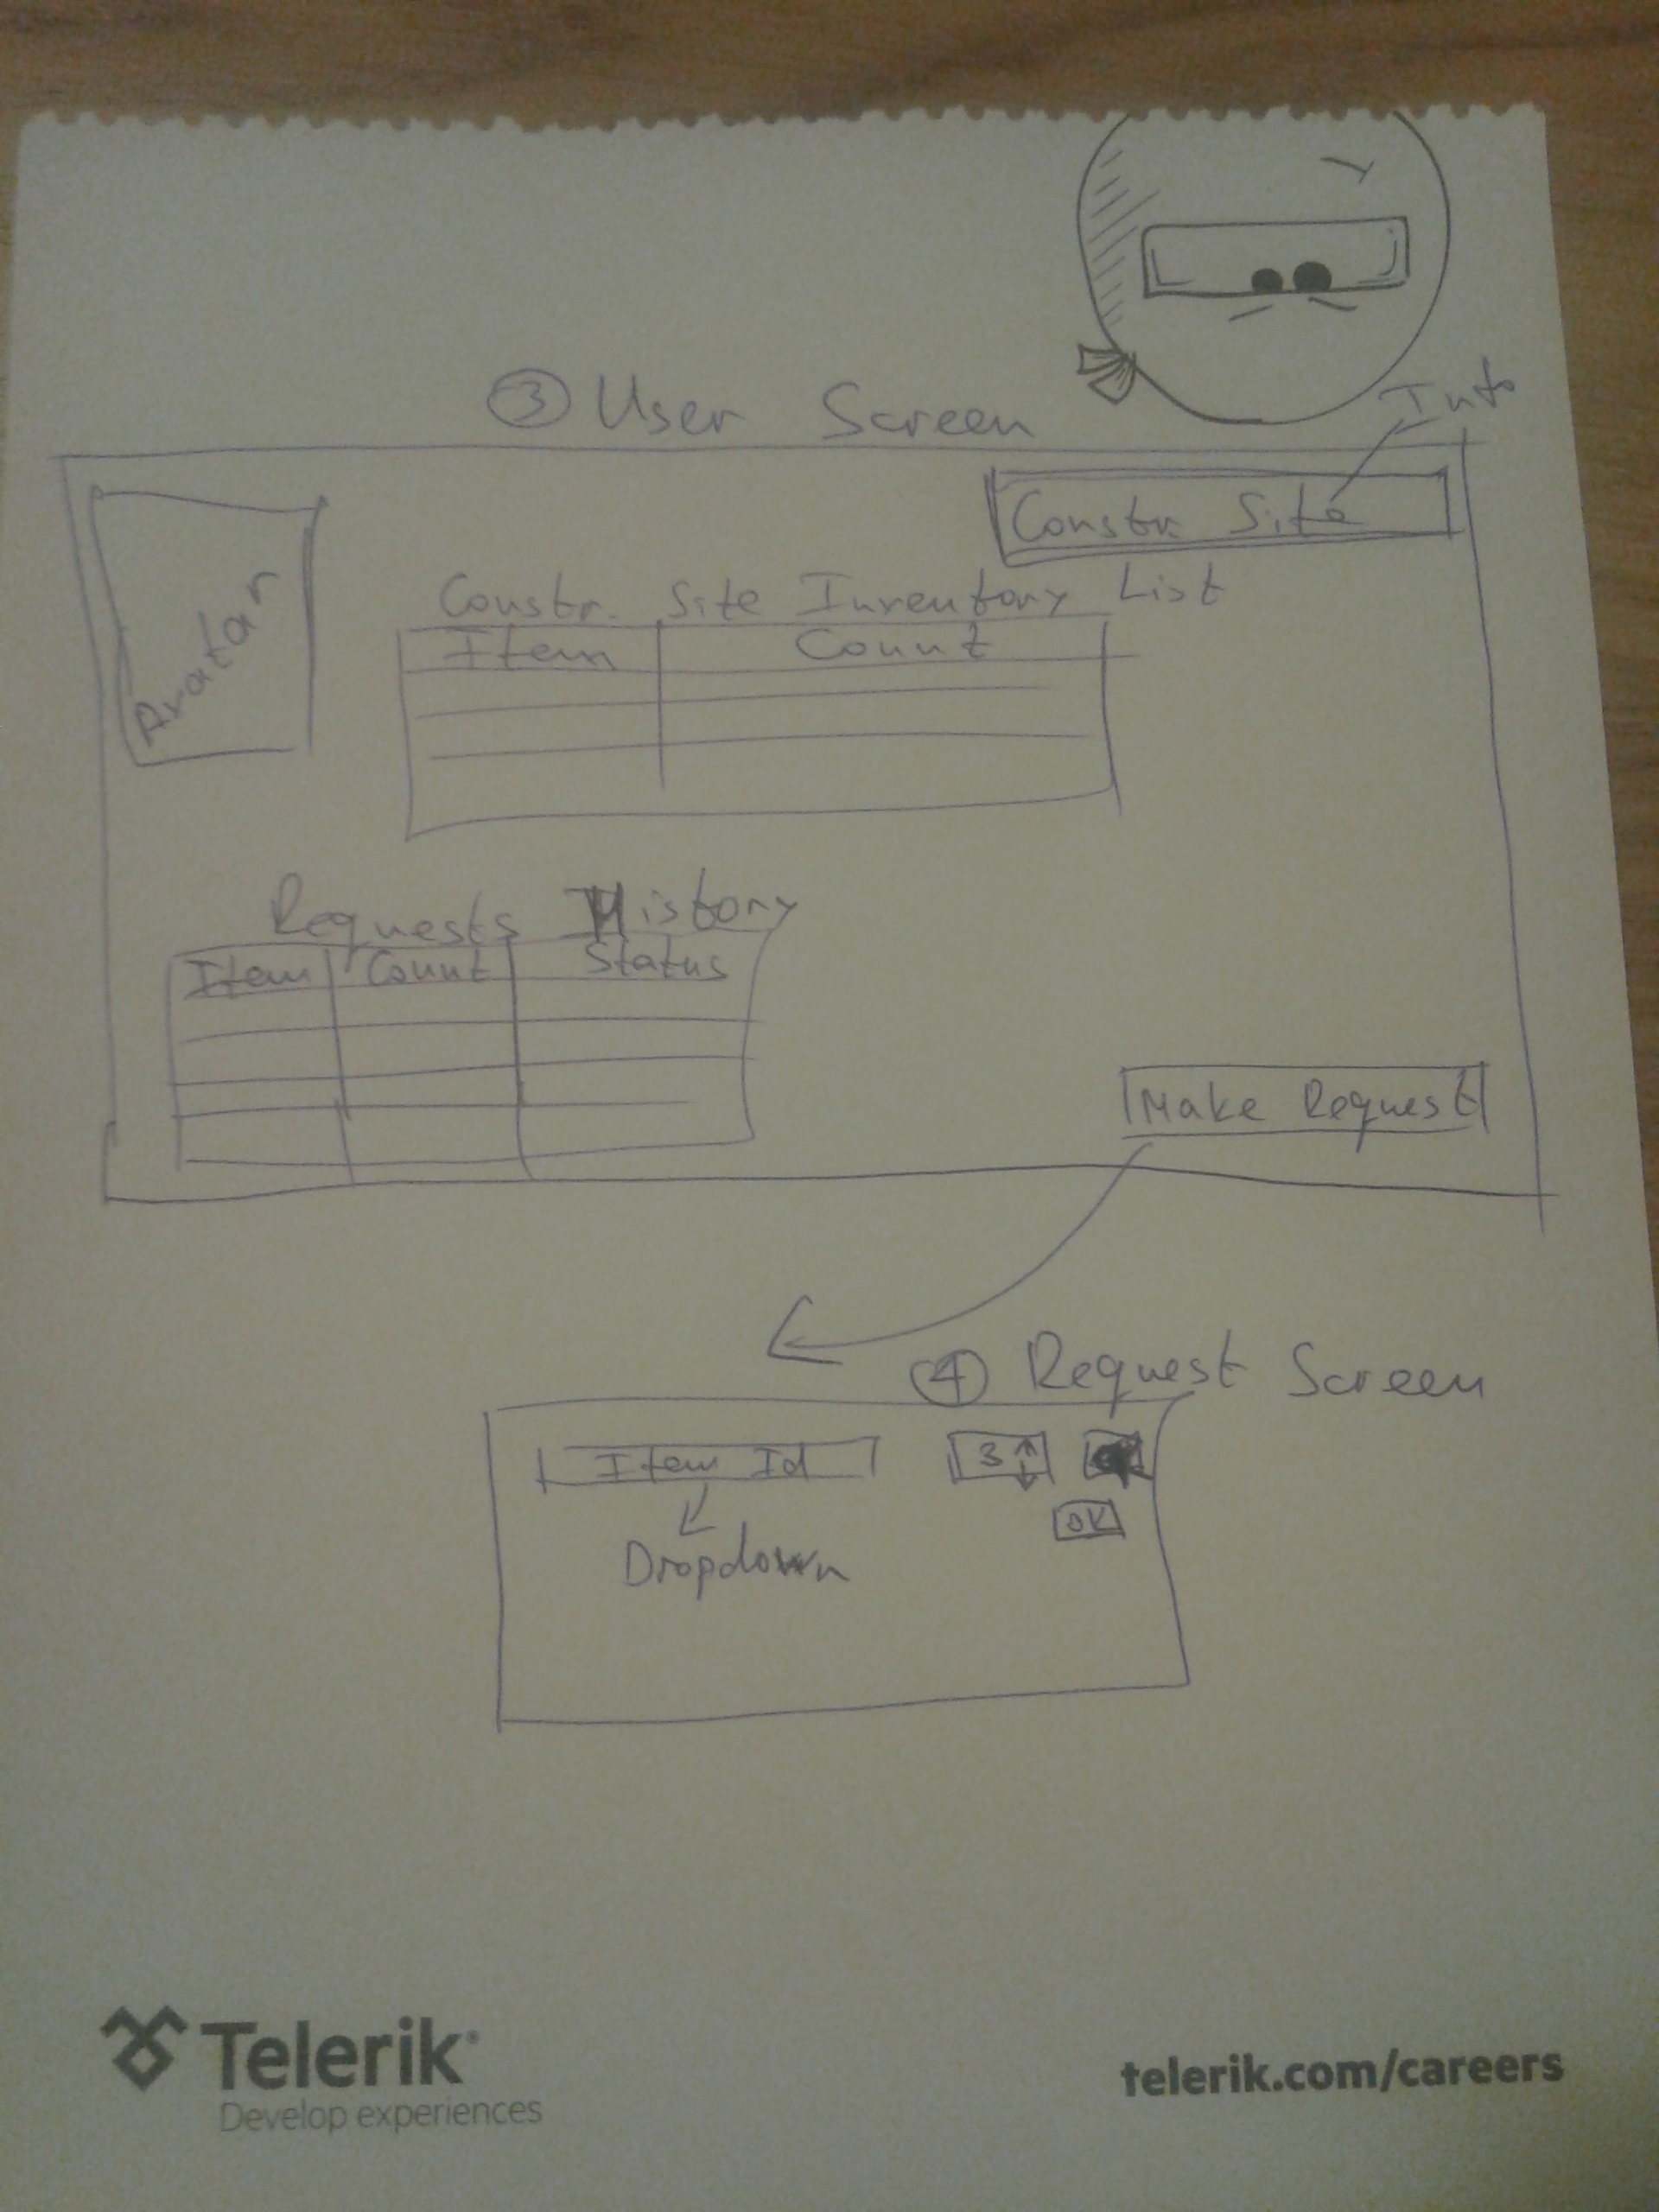 3 User Screen
Info
Constr. Site
Avatar
Constr. Site Inventory List
Item Count
Requests History
Item Count Status
Make Request
4 Request Screen
Item Id 3
OK
Dropdown
Telerik®
Develop experiences
telerik.com/careers